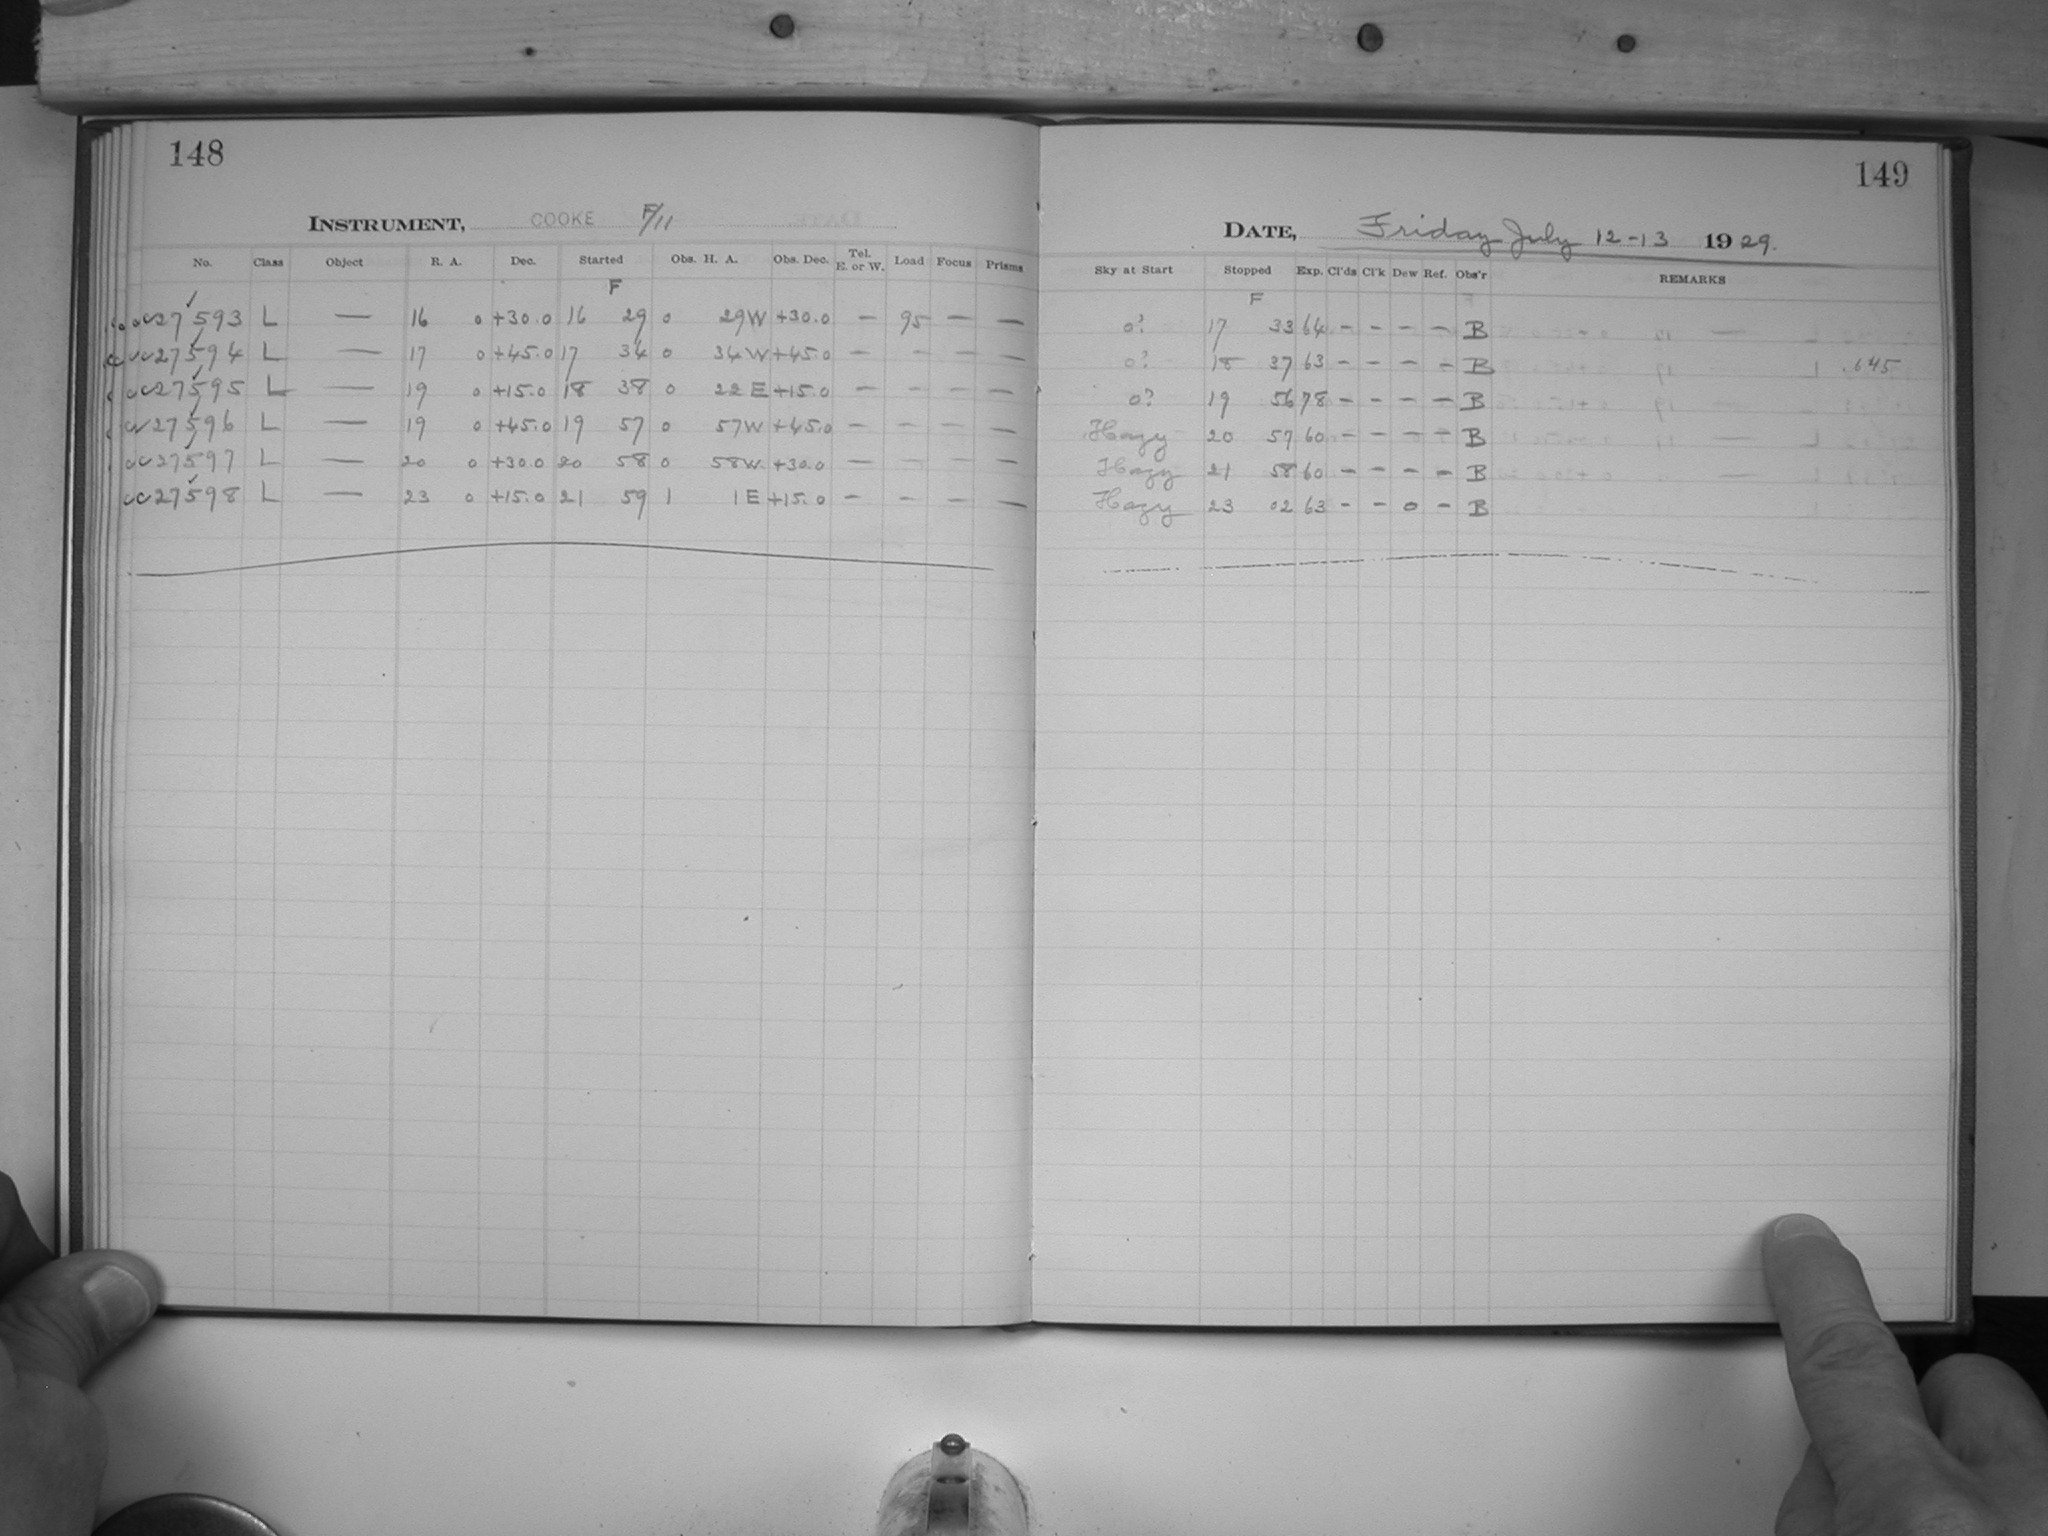 148
INSTRUMENT, COOKE F/11
No. Class Object R. A. Dec. Started Obs. H. A. Obs. Dec. Tel. E. or W. Load Focus Prisms
F
27593 L — 16 0 +30.0 16 29 0 29W +30.0 — 95 — —
27594 L — 17 0 +45.0 17 34 0 34W +45.0 — — — —
27595 L — 19 0 +15.0 18 38 0 22E +15.0 — — — —
27596 L — 19 0 +45.0 19 57 0 57W +45.0 — — — —
27597 L — 20 0 +30.0 20 58 0 58W +30.0 — — — —
27598 L — 23 0 +15.0 21 59 1 1E +15.0 — — — —
149
DATE, Friday July 12-13 1929.
Sky at Start Stopped Exp. Cl'ds Cl'k Dew Ref. Obs'r REMARKS
F
0? 17 33 64 – – – – B
0? 18 37 63 – – – – B .645
0? 19 56 78 – – – – B
Hazy 20 57 60 – – – – B
Hazy 21 58 60 – – – – B
Hazy 23 02 63 – – 0 – B